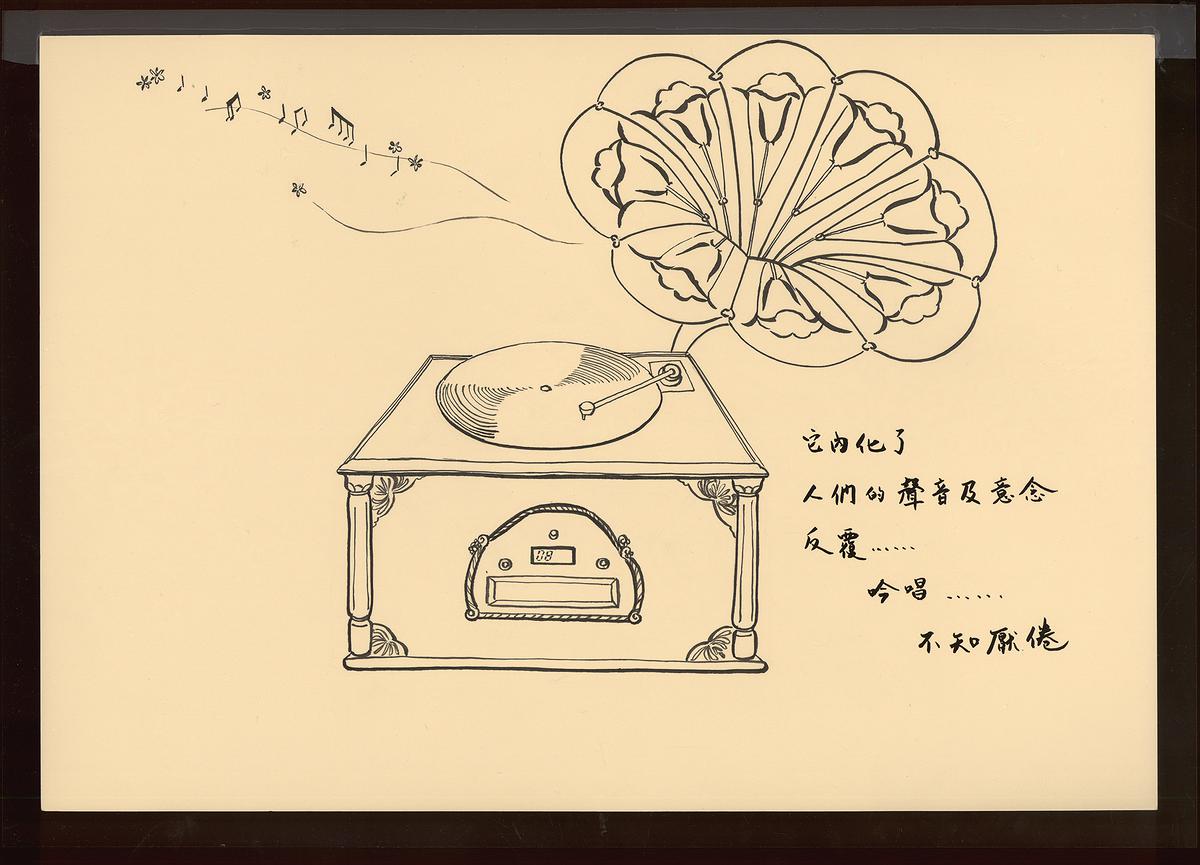 它內化了
人們的聲音及意念
反覆……
吟唱……
不知厭倦
08